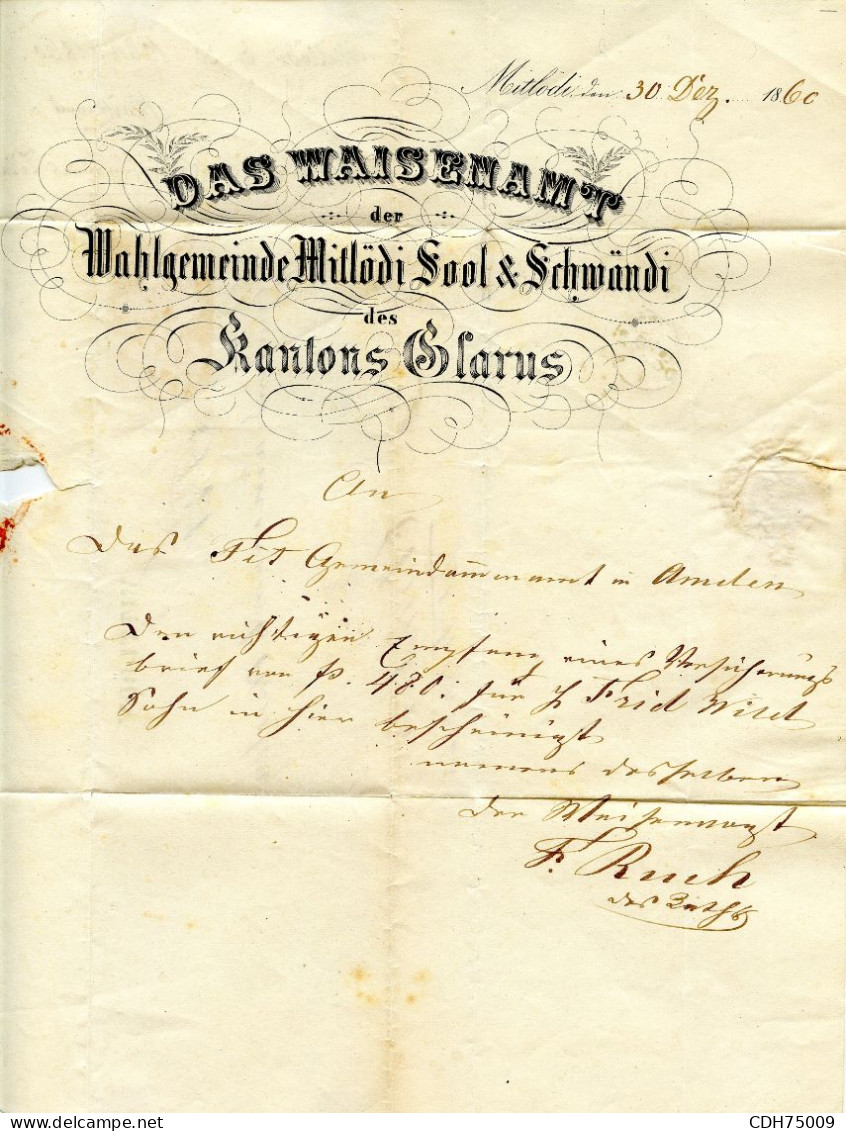 Mitlödi den 30 Dez. 1860
DAS WAISENAMT
der
Wahlgemeinde Mitlödi Sool & Schwändi
des
Kantons Glarus
An
Das Tit Gemeindammanamt in Amden
Den richtigen Empfang eines Versicherungs
brief von fr. 470. für Frid
Sohn in hier bescheinigt
namens desselben
Der Waisenvogt
F. Ruch
des Raths
CDH75009